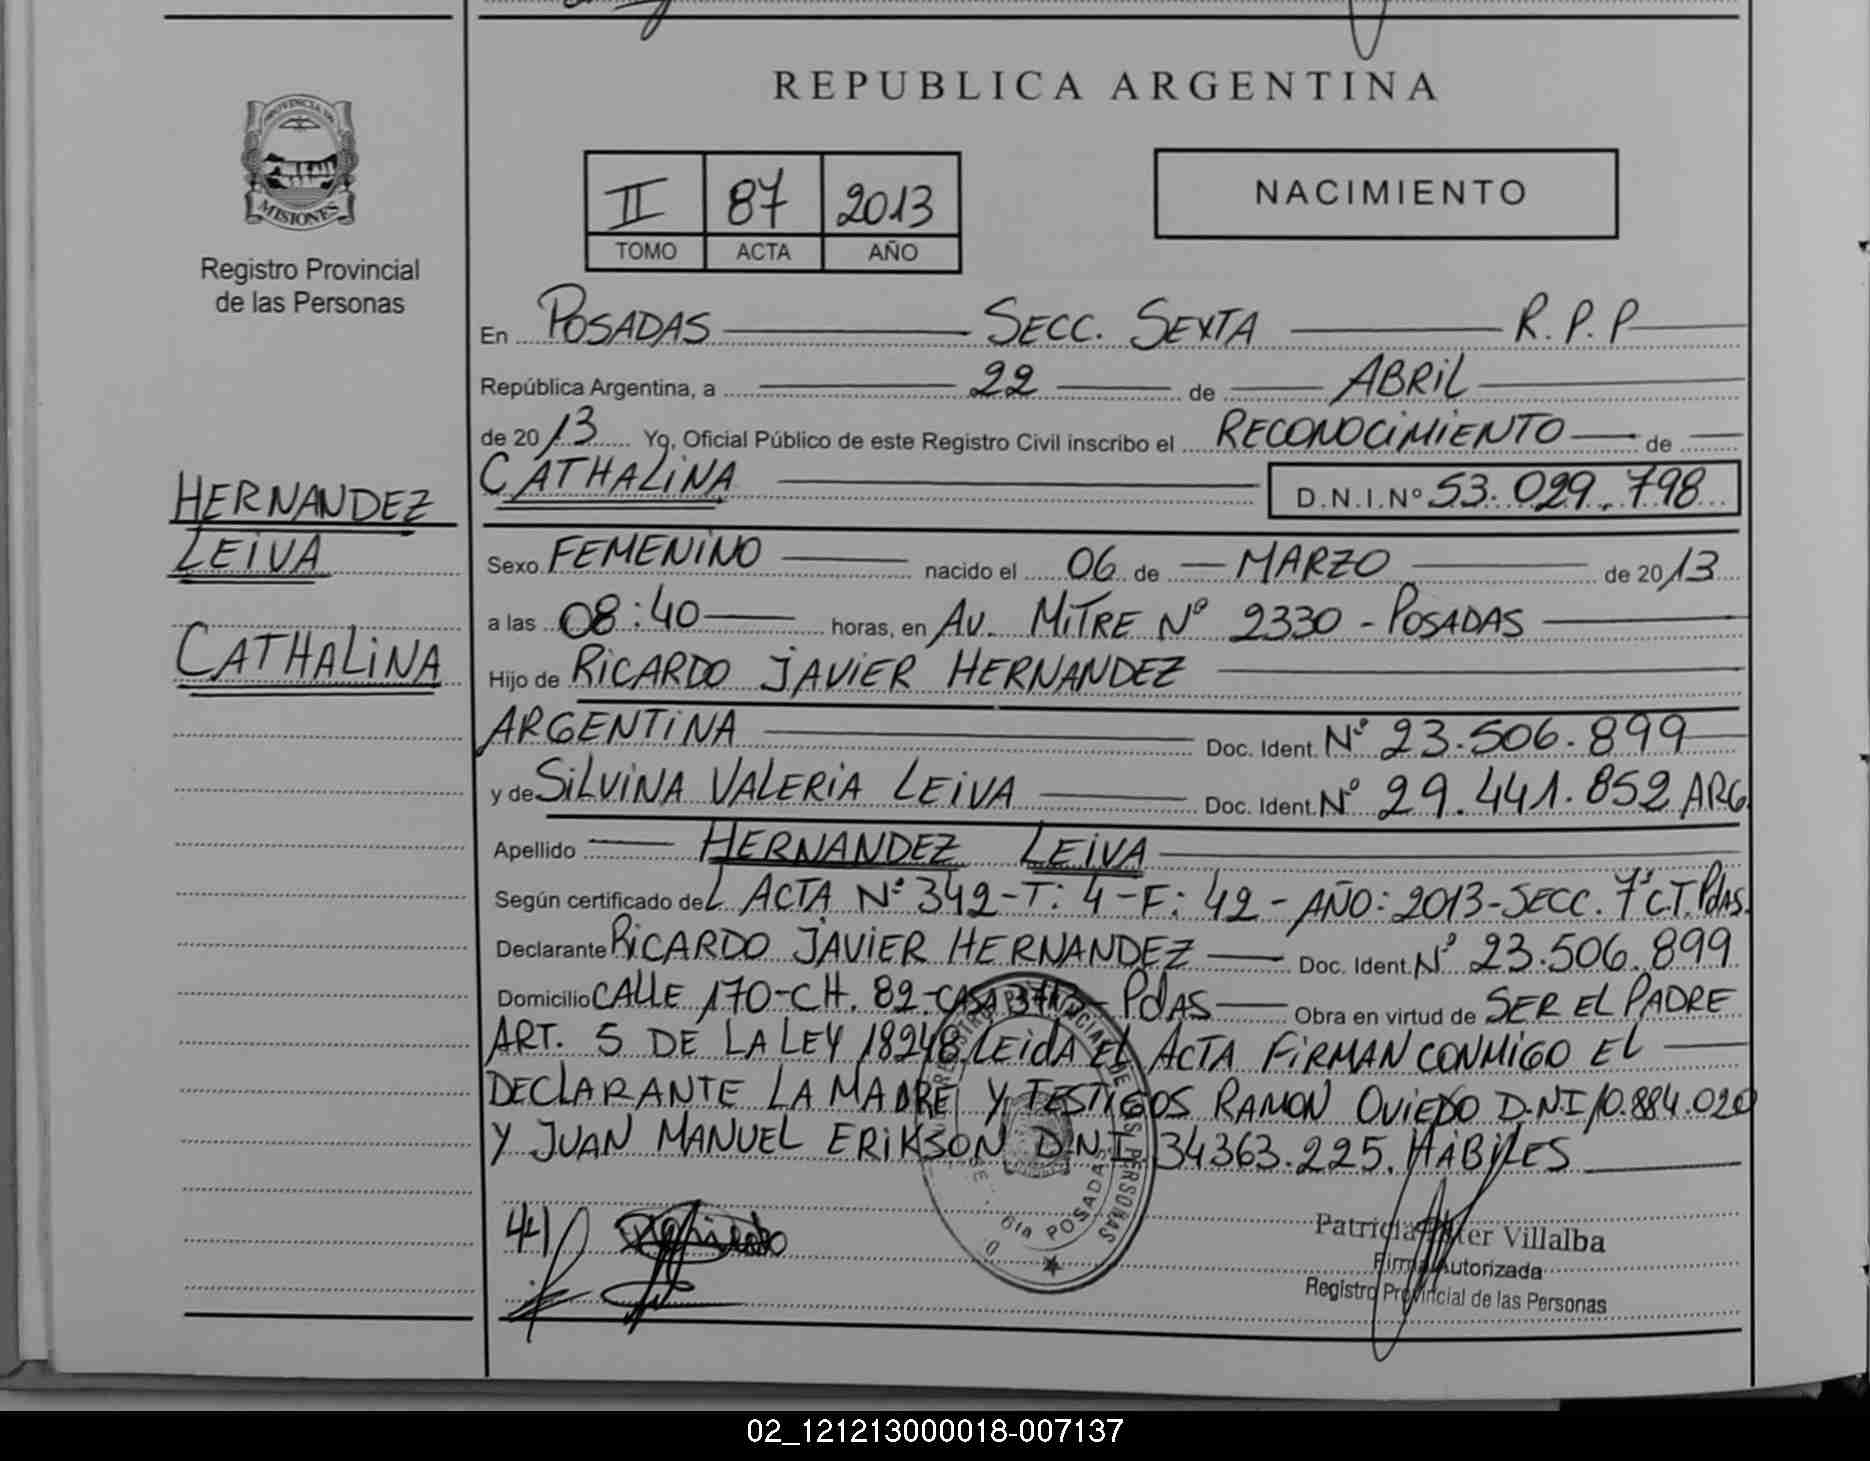 REPUBLICA ARGENTINA
PROVINCIA DE
MISIONES
Registro Provincial
de las Personas
II 87 2013
TOMO ACTA AÑO
NACIMIENTO
En POSADAS SECC. SEXTA R.P.P
República Argentina, a 22 de ABRIL
de 2013 Yo, Oficial Público de este Registro Civil inscribo el RECONOCIMIENTO de
CATHALINA D.N.I.Nº 53.029.798
HERNANDEZ
LEIVA
CATHALINA
Sexo FEMENINO nacido el 06 de MARZO de 2013
a las 08:40 horas, en AV. MITRE Nº 2330 - POSADAS
Hijo de RICARDO JAVIER HERNANDEZ
ARGENTINA Doc. Ident. Nº 23.506.899
y de SILVINA VALERIA LEIVA Doc. Ident. Nº 29.441.852 ARG.
Apellido HERNANDEZ LEIVA
Según certificado deL ACTA Nº 342-T: 4-F: 42-AÑO: 2013-SECC. 7º C.T. Pdas.
Declarante RICARDO JAVIER HERNANDEZ Doc. Ident. Nº 23.506.899
Domicilio CALLE 170-CH. 82-CASA - PdAS Obra en virtud de SER EL PADRE
ART. 5 DE LA LEY 18248. LEIdA EL ACTA FIRMAN CONMIGO EL
DECLARANTE LA MADRE Y TESTIGOS RAMON OVIEDO D.N.I 10.884.020
Y JUAN MANUEL ERIKSON D.N.I 34363.225. HABILES
REGISTRO PROVINCIAL DE LAS PERSONAS
6ta POSADAS
Patricia Villalba
Firma Autorizada
Registro Provincial de las Personas
02_121213000018-007137